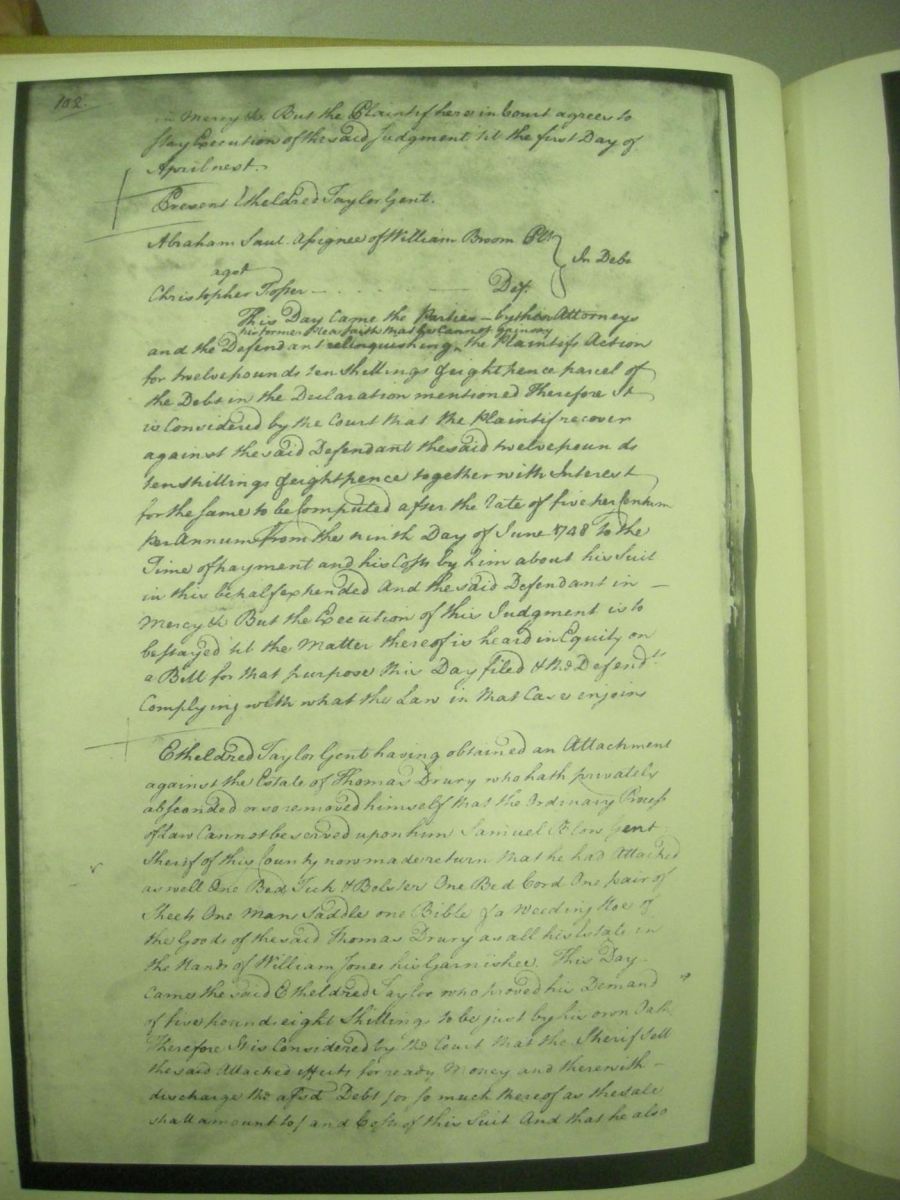 102.
in Mercy &c. But the Plaintif here in Court agrees to
stay Execution of the said Judgment 'til the first Day of
April next.
Present Etheldred Taylor Gent.
Abraham Saul Assignee of William Broom Plt
In Debt
agst
Christopher Tosser Def.
This Day Came the Parties by their Attorneys
his former Plea saith that he Cannot gainsay
and the Defendant relinquishing the Plaintifs Action
for twelve pounds ten shillings & eight pence parcel of
the Debt in the Declaration mentioned Therefore It
is Considered by the Court that the Plaintif recover
against the said Defendant the said twelve pounds
ten shillings & eight pence together with Interest
for the same to be Computed after the rate of five per Centum
per Annum from the ninth Day of June 1748 to the
Time of payment and his Costs by him about his Suit
in this behalf expended And the said Defendant in
Mercy &c. But the Execution of this Judgment is to
be stayed 'til the Matter thereof is heard in Equity on
a Bill for that purpose this Day filed & the Defendts
Complying with what the Law in that Case enjoins
Etheldred Taylor Gent having obtained an Attachment
against the Estate of Thomas Drury who hath privately
absconded or so removed himself that the Ordinary Process
of Law Cannot be served upon him Samuel Blow Gent
Sherif of this County now made return that he had Attached
as well One Bed Tick & Bolster One Bed Cord One pair of
Sheets One Mans Saddle one Bible & a Weeding Hoe of
the Goods of the said Thomas Drury as all his Estate in
the Hands of William Jones his Garnishee. This Day
Came the said Etheldred Taylor who proved his Demand
of five pounds eight Shillings to be just by his own Oath
Therefore It is Considered by the Court that the Sherif Sell
the said Attached effects for ready Money and therewith
discharge the afsd Debt (or so much thereof as the sale
shall amount to) and Costs of this Suit And that he also